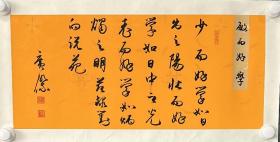 敏而好学
少而好学如日
出之陽壮而好
学如日中之光
老而好学如炳
燭之明
向说苑